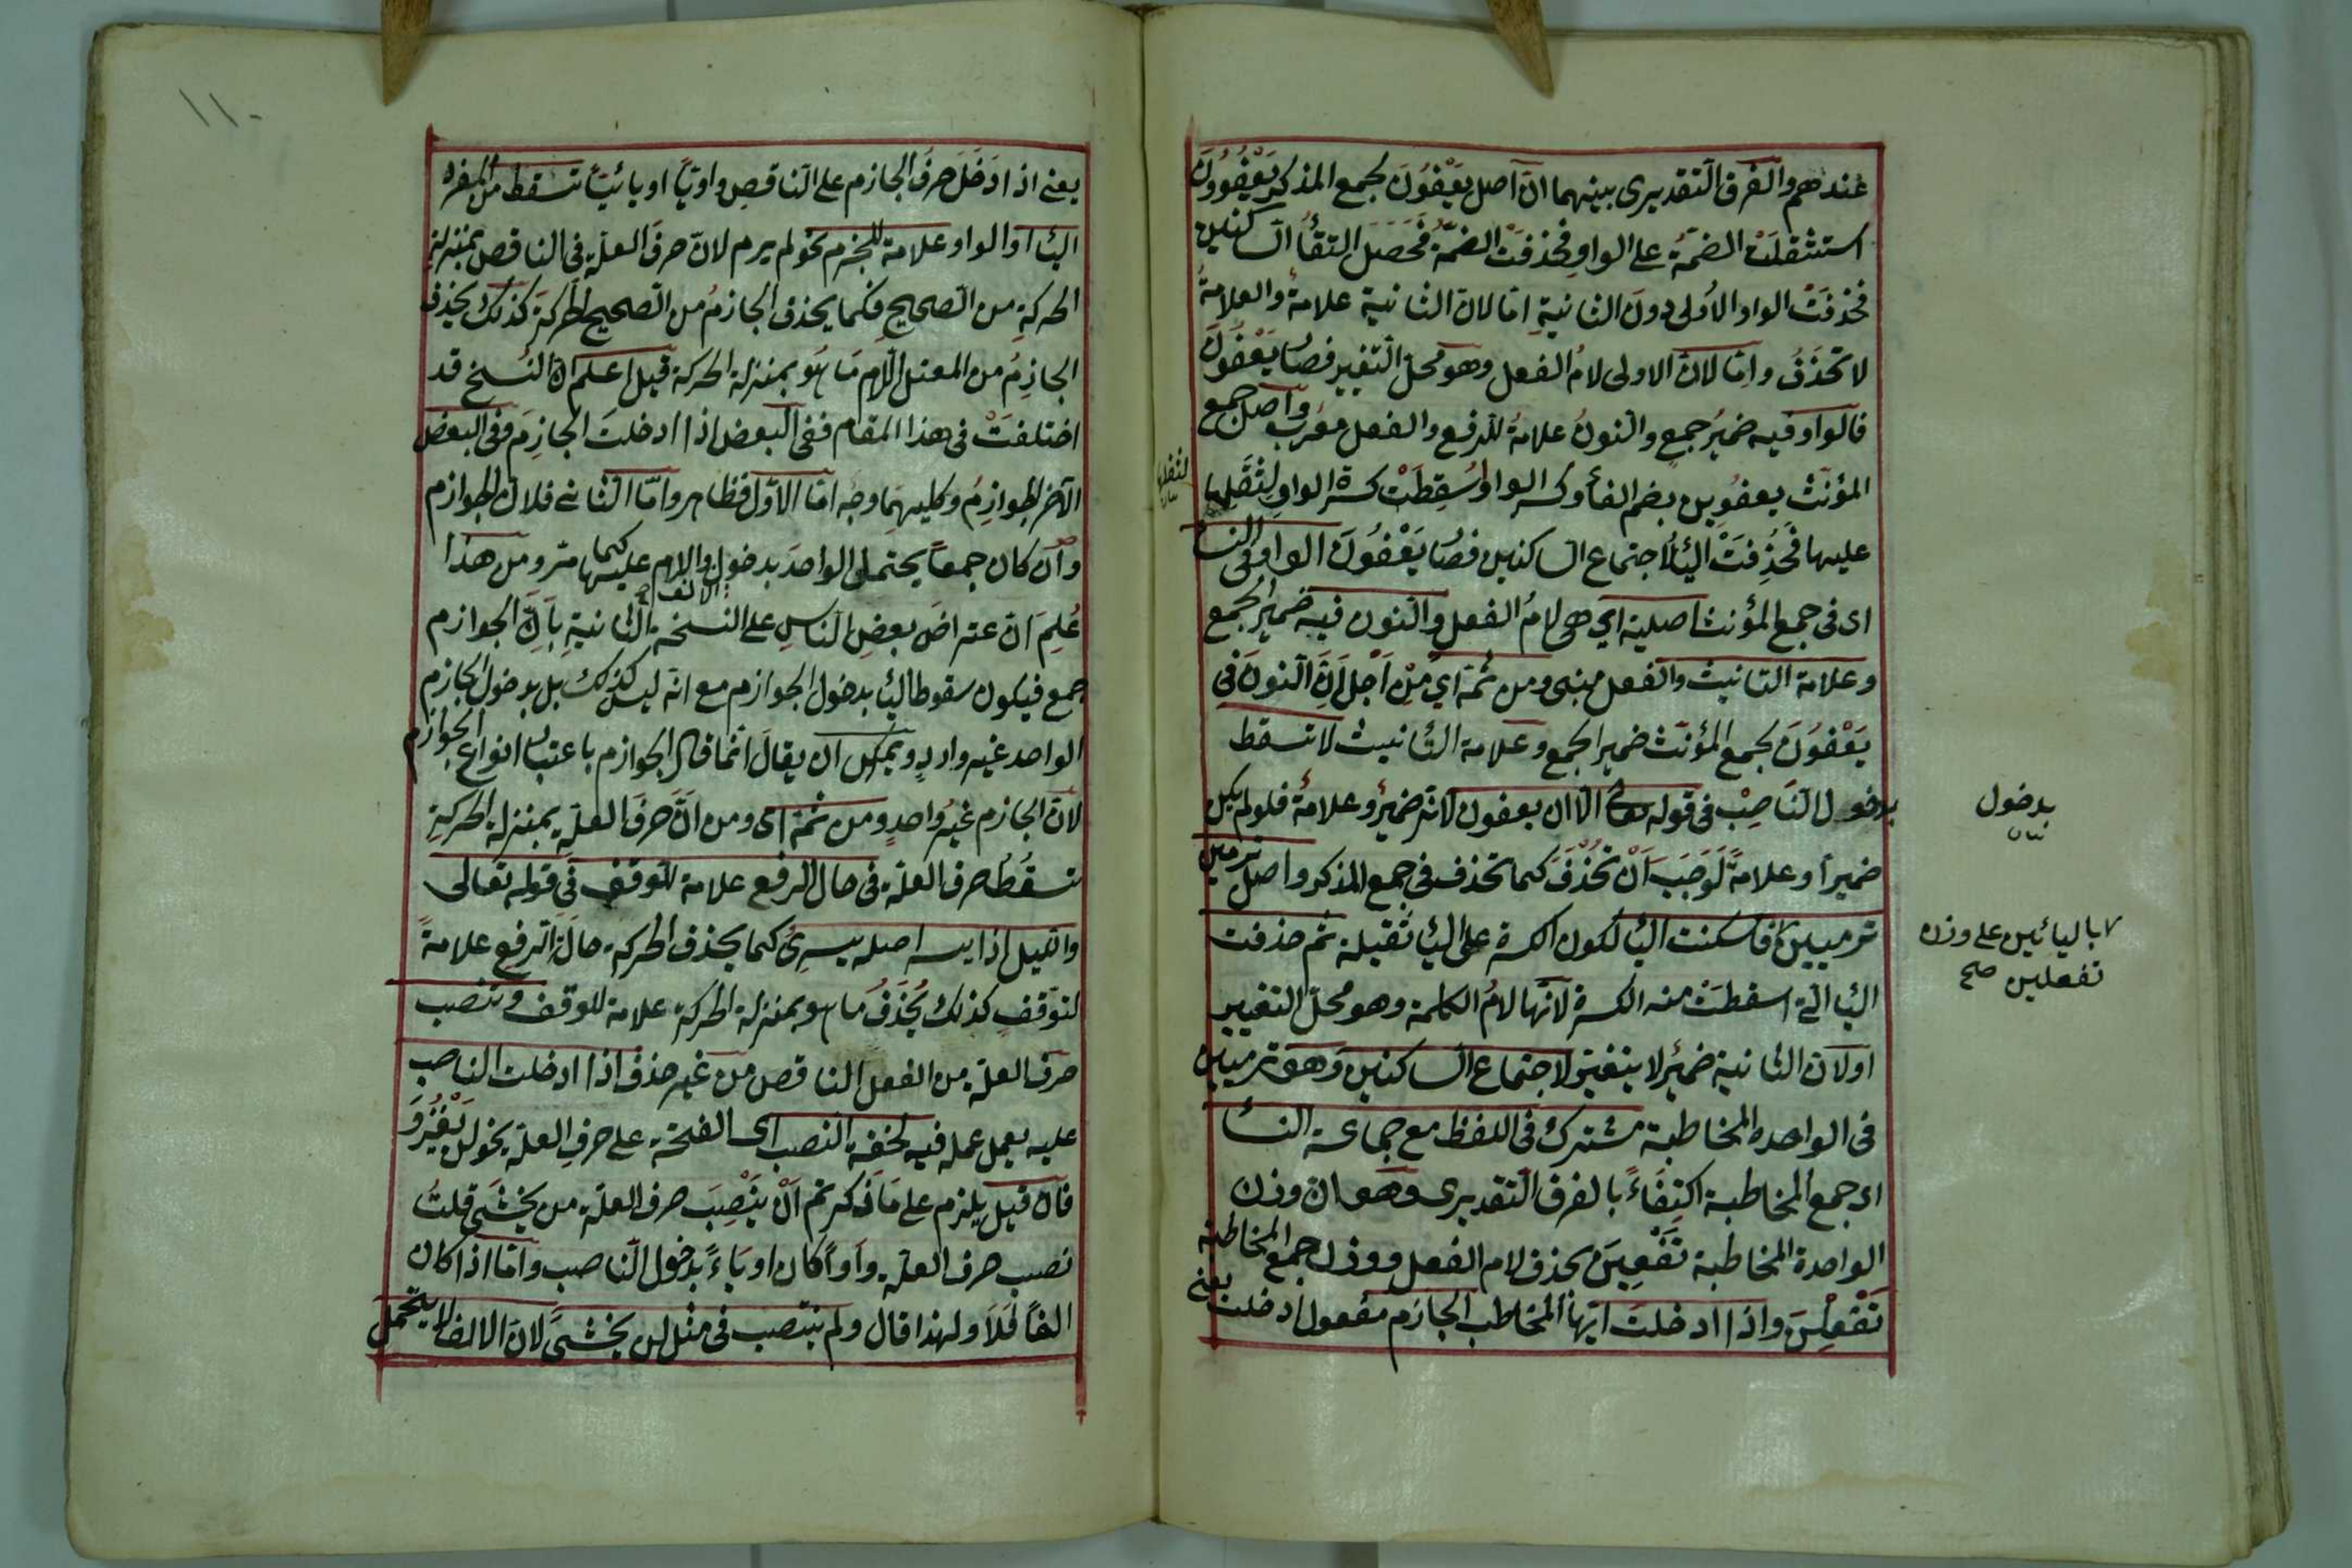 عندهم والفرق التقديرى بينهما انّ اصل يَعْفُونَ لجمع المذكر يَعْفُوُونَ
استثقلَت الضمّة على الواوِ فحُذفَتْ الضمّة فَحَصَلَ التقأُ الساكنين
فحُذفَتْ الواو الاُولى دونَ الثانيةِ امّا لانّ الثانية علامةٌ والعلامةُ
لا تحْذَفُ وامّا لانّ الاولى لامُ الفعل وهو محلّ التّغيير فصار يَعْفُونَ
فالواو فيه ضميرُ جمعٍ والنونُ علامةٌ للرفع والفعل معرب واصل جمع
المؤنّث يعفُوِين بضم الفأ وكسر الواو وسُقِطَتْ كسرة الواوِ لِثِقَلِها
عليها فحُذِفَتْ اليأ لاجتماع الساكنين فصار يَعْفُونَ الواو فى النسأ
اى فى جمع المؤنث اصلية اي هى لامُ الفعل والنون فيه ضميرُ الجمع
وعلامة التانيث والفعل مبنى ومن ثمة اي مِنْ اَجل اَنّ النونَ فى
يَعْفُونَ لجمع المؤنّث ضمير الجمع وعلامة التأنيث لا تسقط
بدخول النّاصِبْ فى قوله تعالى الّا ان يعفون لانّه ضميرٌ وعلامةٌ فلو لم يكن
ضميراً وعلامةً لَوَجَبَ اَنْ تُحْذَفَ كما تحذف فى جمع المذكر واصل ترمين
ترميين فاسكنت اليأ لكون الكسرة على اليأ ثقيلة ثم حذفت
اليأ الّتى اسقطَتْ منه الكسرة لانّها لامُ الكلمة وهو محلّ التغيير
او لانّ الثانية ضميرٌ لا يتغيّر لاجتماع الساكنين وهو ترميين
فى الواحدة المخاطبة مشترك فى اللفظ مع جماعة النسأ
اى جمع المخاطبة اكتِفَاءً بالفرق التقديرى وهو انّ وزن
الواحدة المخاطبة تَفْعِينَ بحذف لام الفعل ووزن جمع المخاطبة
تَفْعِلْنَ واذا ادخلتَ ايّها المخاطب الجازم مفعول ادخلت يعنى
لثقلها
بدخول
بالياءين على وزن
تفعلين صح
١١٠
يعنى اذا دَخَلَ حرفُ الجازم على النّاقصِ واويّاً او يائيّاً تسقط من المفرد
اليأ والواو علامة للجزم نحو لم يرم لانّ حرفَ العلّةِ فى الناقص بمنزلةِ
الحركةِ من الصحيحِ فكما يحذف الجازمُ من الصحيح الحركةَ كذلك يحذف
الجازِمُ من المعتل اللام مَا هُو بمنزلة الحركة قيل اعلم انّ النُسخ قد
اختلفتْ فى هذا المقام ففى البعض اذا ادخلتَ الجازِمَ وفى البعض
الآخر الجوازِمُ وكليهمَا وجْه امّا الاوّل فظاهر وامّا الثانى فلانّ الجوازم
واَنْ كان جمعاً يحتمل الواحدَ بدخول الالف واللام عليها كما مرّ ومن هذا
عُلِمَ انّ اعتراضَ بعضِ النّاسِ على النسخة الثانيةِ بِاَنّ الجوازم
جمع فيكون سقوط اليأ بدخول الجوازم مع انّه ليس كذلك بل بدخول الجازم
الواحد غير واردٍ ويمكن ان يقالَ انّما قال الجوازم باعتبار انواع الجوازم
لانّ الجازم غيرُ واحدٍ ومن ثمة اى ومن انّ حَرفَ العلّةِ بمنزلة الحركةِ
تسقُطُ حرف العلّة فى حال الرفع علامة للوقف فى قوله تعالى
والليل اذا يسر اصله يسرِىُ كما يحذف الحركة حالَ الرفع علامةً
لتوقفٍ كذلك يُحْذَفُ ما هو بمنزلة الحركة علامة للوقف وتنصب
حرف العلّة من الفعل الناقص من غير حذف اذا ادخلت الناصب
عليه يعمل عمله فيه لخفة النصب اى الفتحة على حرفِ العلّة نحو لن يَغْزُوَ
فان قيل يلزم على مَا ذكرتم اَنْ يَنْصِبَ حرف العلّة من يخشَى قلتُ
نصب حرف العلّة واواً كان او يَاءً بدخول النّاصب وامّا اذا كان
الفاً فَلَا ولهذا قال ولم ينتصب فى مثل لن يخشَى لانّ الالف لا يتحمل